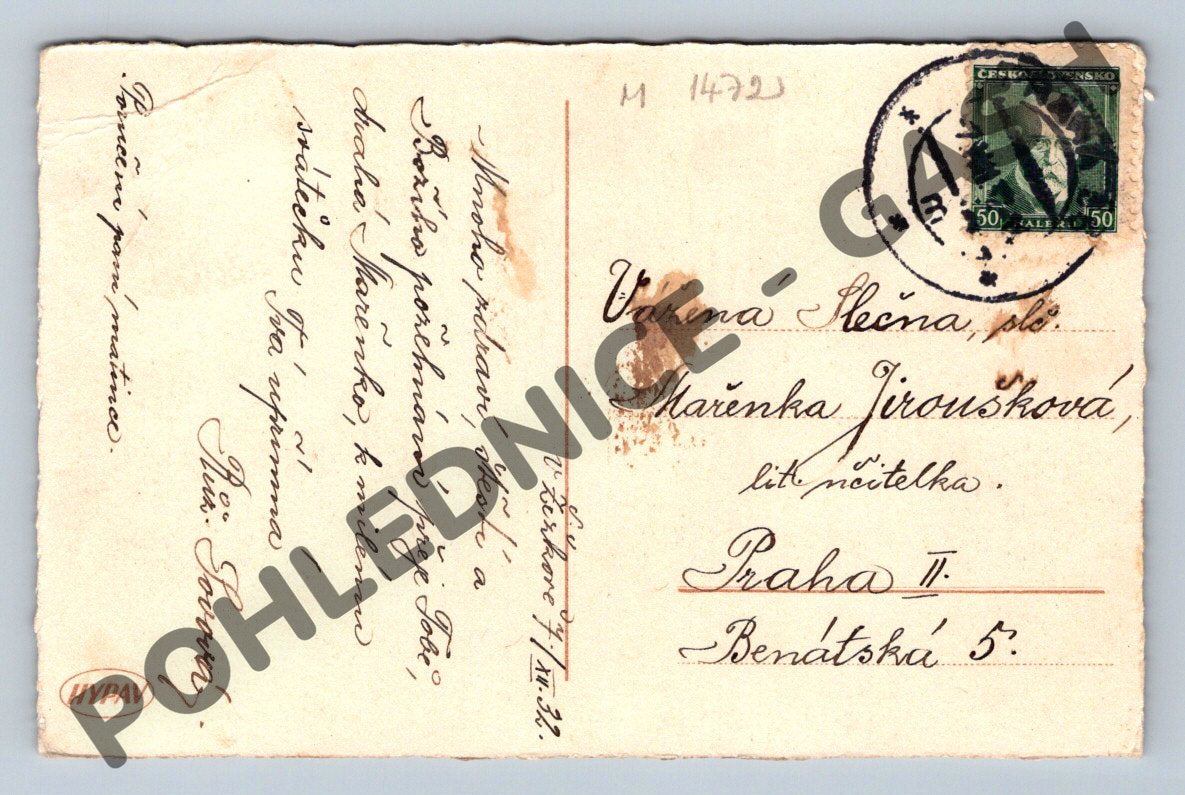 M 1472
ČESKOSLOVENSKO
50 HALERU 50
V Žižkově 7/XII.32.
Mnoho zdraví, štěstí a
Božího požehnání přeje Tobě,
drahá Mařenko, k milému
svátečku Tvá upřímná
Růž. Sovová.
Poručení paní matince.
Vážená Slečna, slč.
Mařenka Jiroušková,
lit. učitelka.
Praha II.
Benátská 5.
HYPAV
POHLEDNICE - GASCH